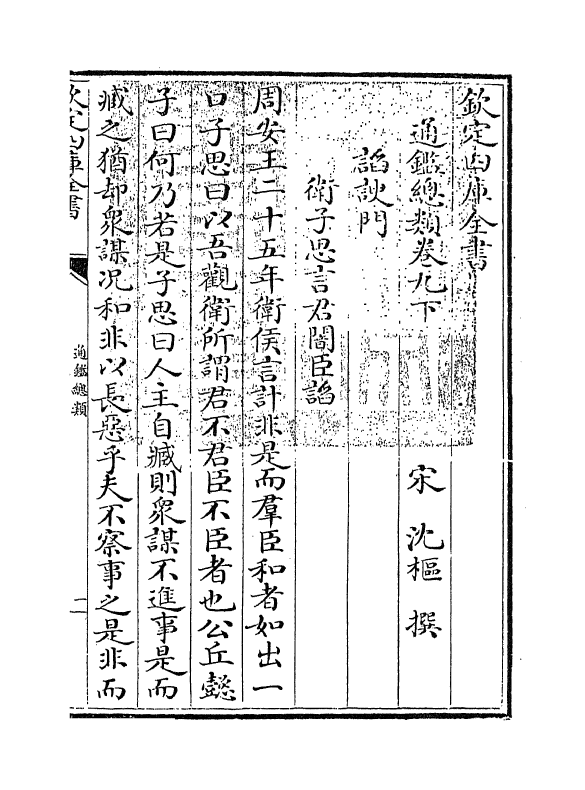 欽定四庫全書
通鑑總類卷九下
宋 沈樞 撰
諂諛門
衛子思言君闇臣諂
周安王二十五年衛侯言計非是而羣臣和者如出一
口子思曰以吾觀衛所謂君不君臣不臣者也公丘懿
子曰何乃若是子思曰人主自臧則衆謀不進事是而
臧之猶却衆謀况和非以長惡乎夫不察事之是非而
欽定四庫全書
通鑑總類
二